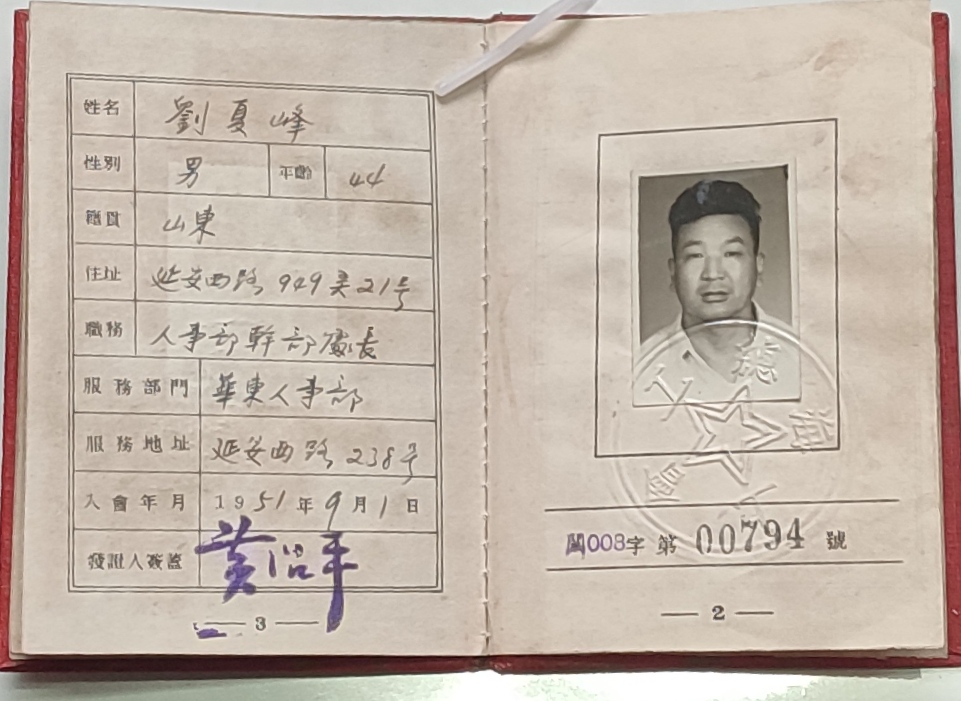 姓名 劉夏峰
性別 男 年齡 44
籍貫 山東
住址 延安西路949弄21号
職務 人事部幹部處長
服務部門 華東人事部
服務地址 延安西路238号
入會年月 1951年9月1日
發證人簽蓋 黃紹平
— 3 —
工總
字第 00794 號
— 2 —